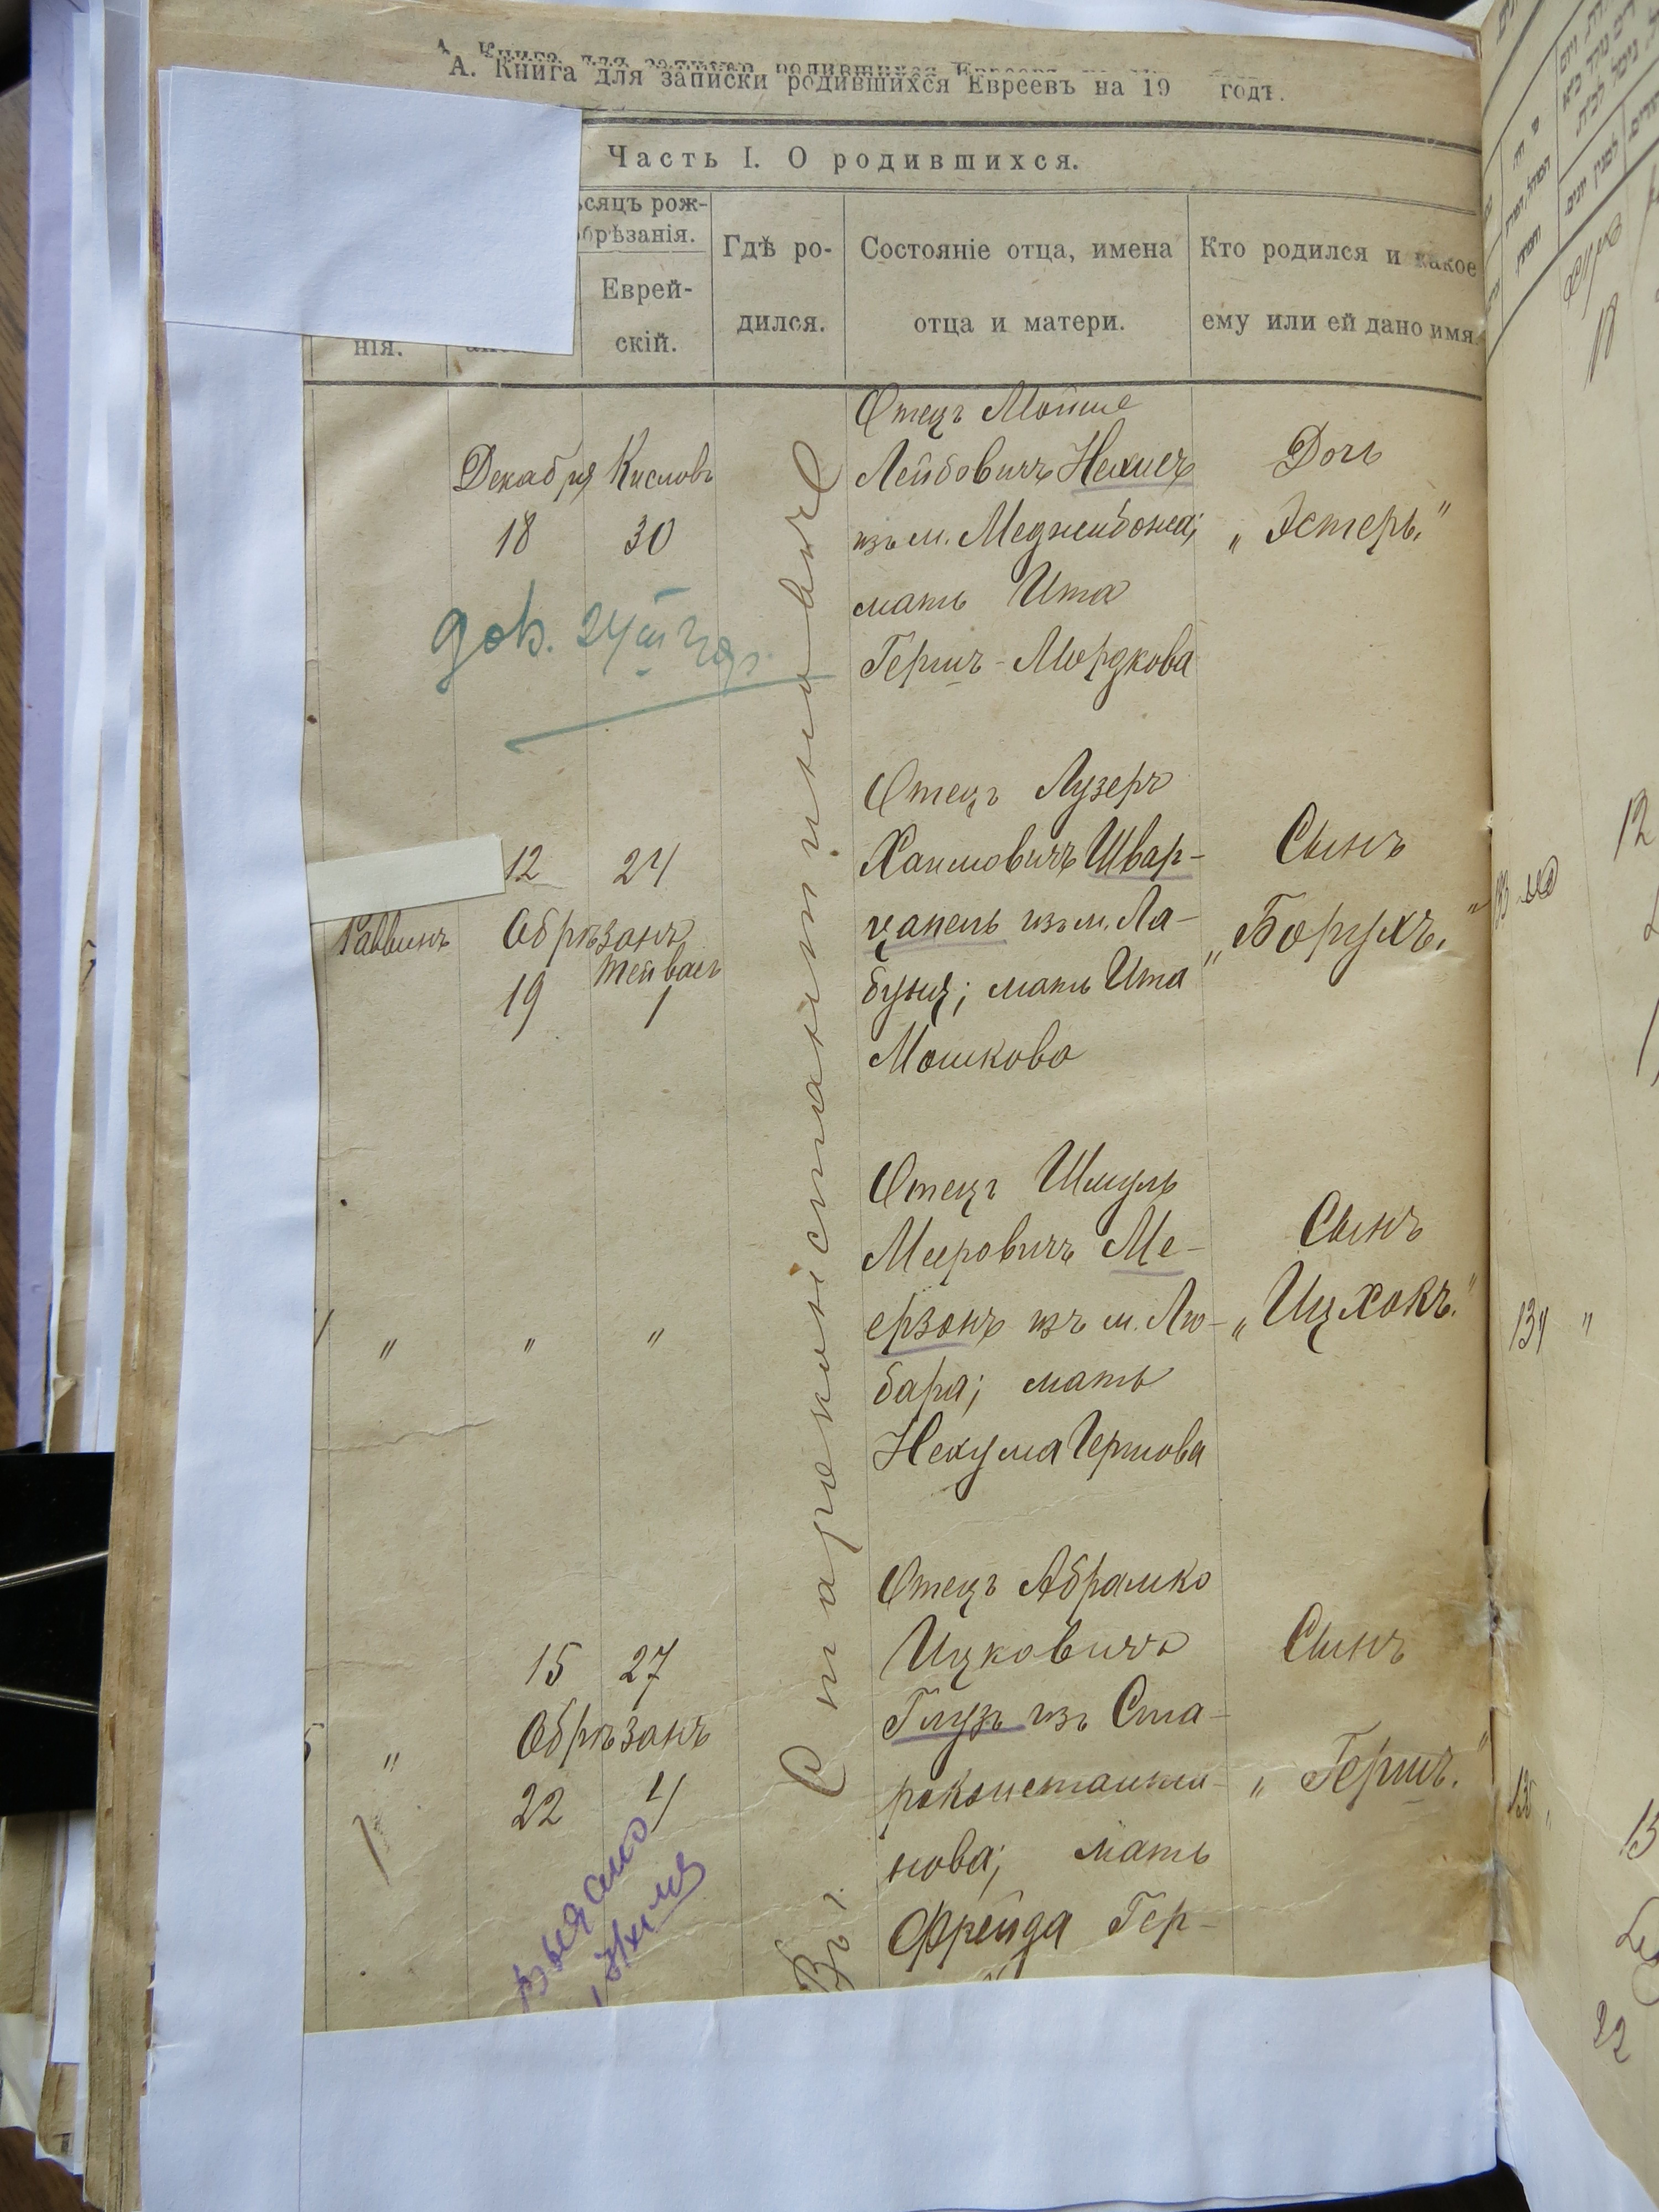 А. Книга для записки родившихся Евреевъ на 19 годъ.
Часть I. О родившихся.
ѣсяцъ рож-
обрѣзанія.
Еврей-
скій.
нія.
Гдѣ ро-
дился.
Состояніе отца, имена
отца и матери.
Кто родился и какое
ему или ей дано имя.
Въ г. Староконстантиновѣ
Декабря Кисловъ
18 30
Отецъ Мойше
Лейбовичъ
изъ м. Меджибожа;
мать Ита
Гершъ-Мордкова
Дочь
„Эстеръ.“
12 24
Раввинъ
Обрѣзанъ
Тейвасъ
19 1
Отецъ Лузеръ
Хаимовичъ Швар-
цапель изъ м. Ла-
буня; мать Ита
Мошкова
Сынъ
„Борухъ.“
" " "
Отецъ Шмуль
Мееровичъ Ме-
ерзонъ изъ м. Лю-
бара; мать
Нехума Гершова
Сынъ
„Ицхокъ.“
15 27
Обрѣзанъ
" 22 4
Отецъ Абрамко
Ицковичъ
Глузъ изъ Ста-
роконстанти-
нова; мать
Фрейда Гер-
Сынъ
„Гершъ.“
134 "
135
12
15
22